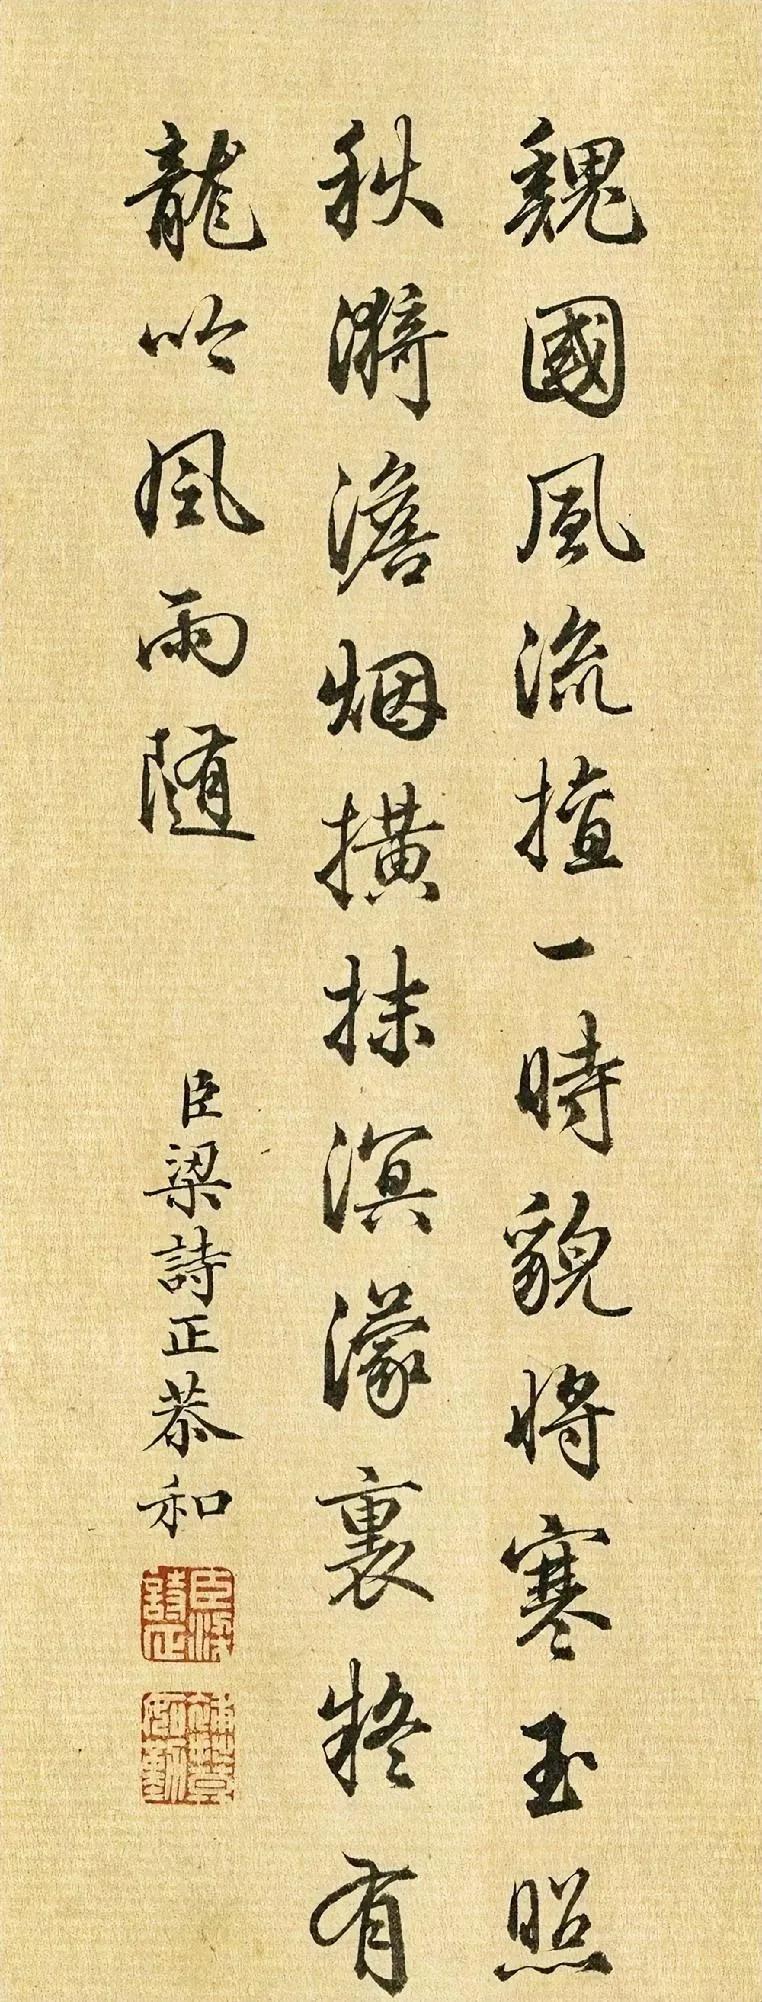 魏國風流擅一時貌將寒玉照
秋漪澹烟橫抹溟濛裏疑有
龍吟風雨隨
臣梁詩正恭和
臣梁詩正